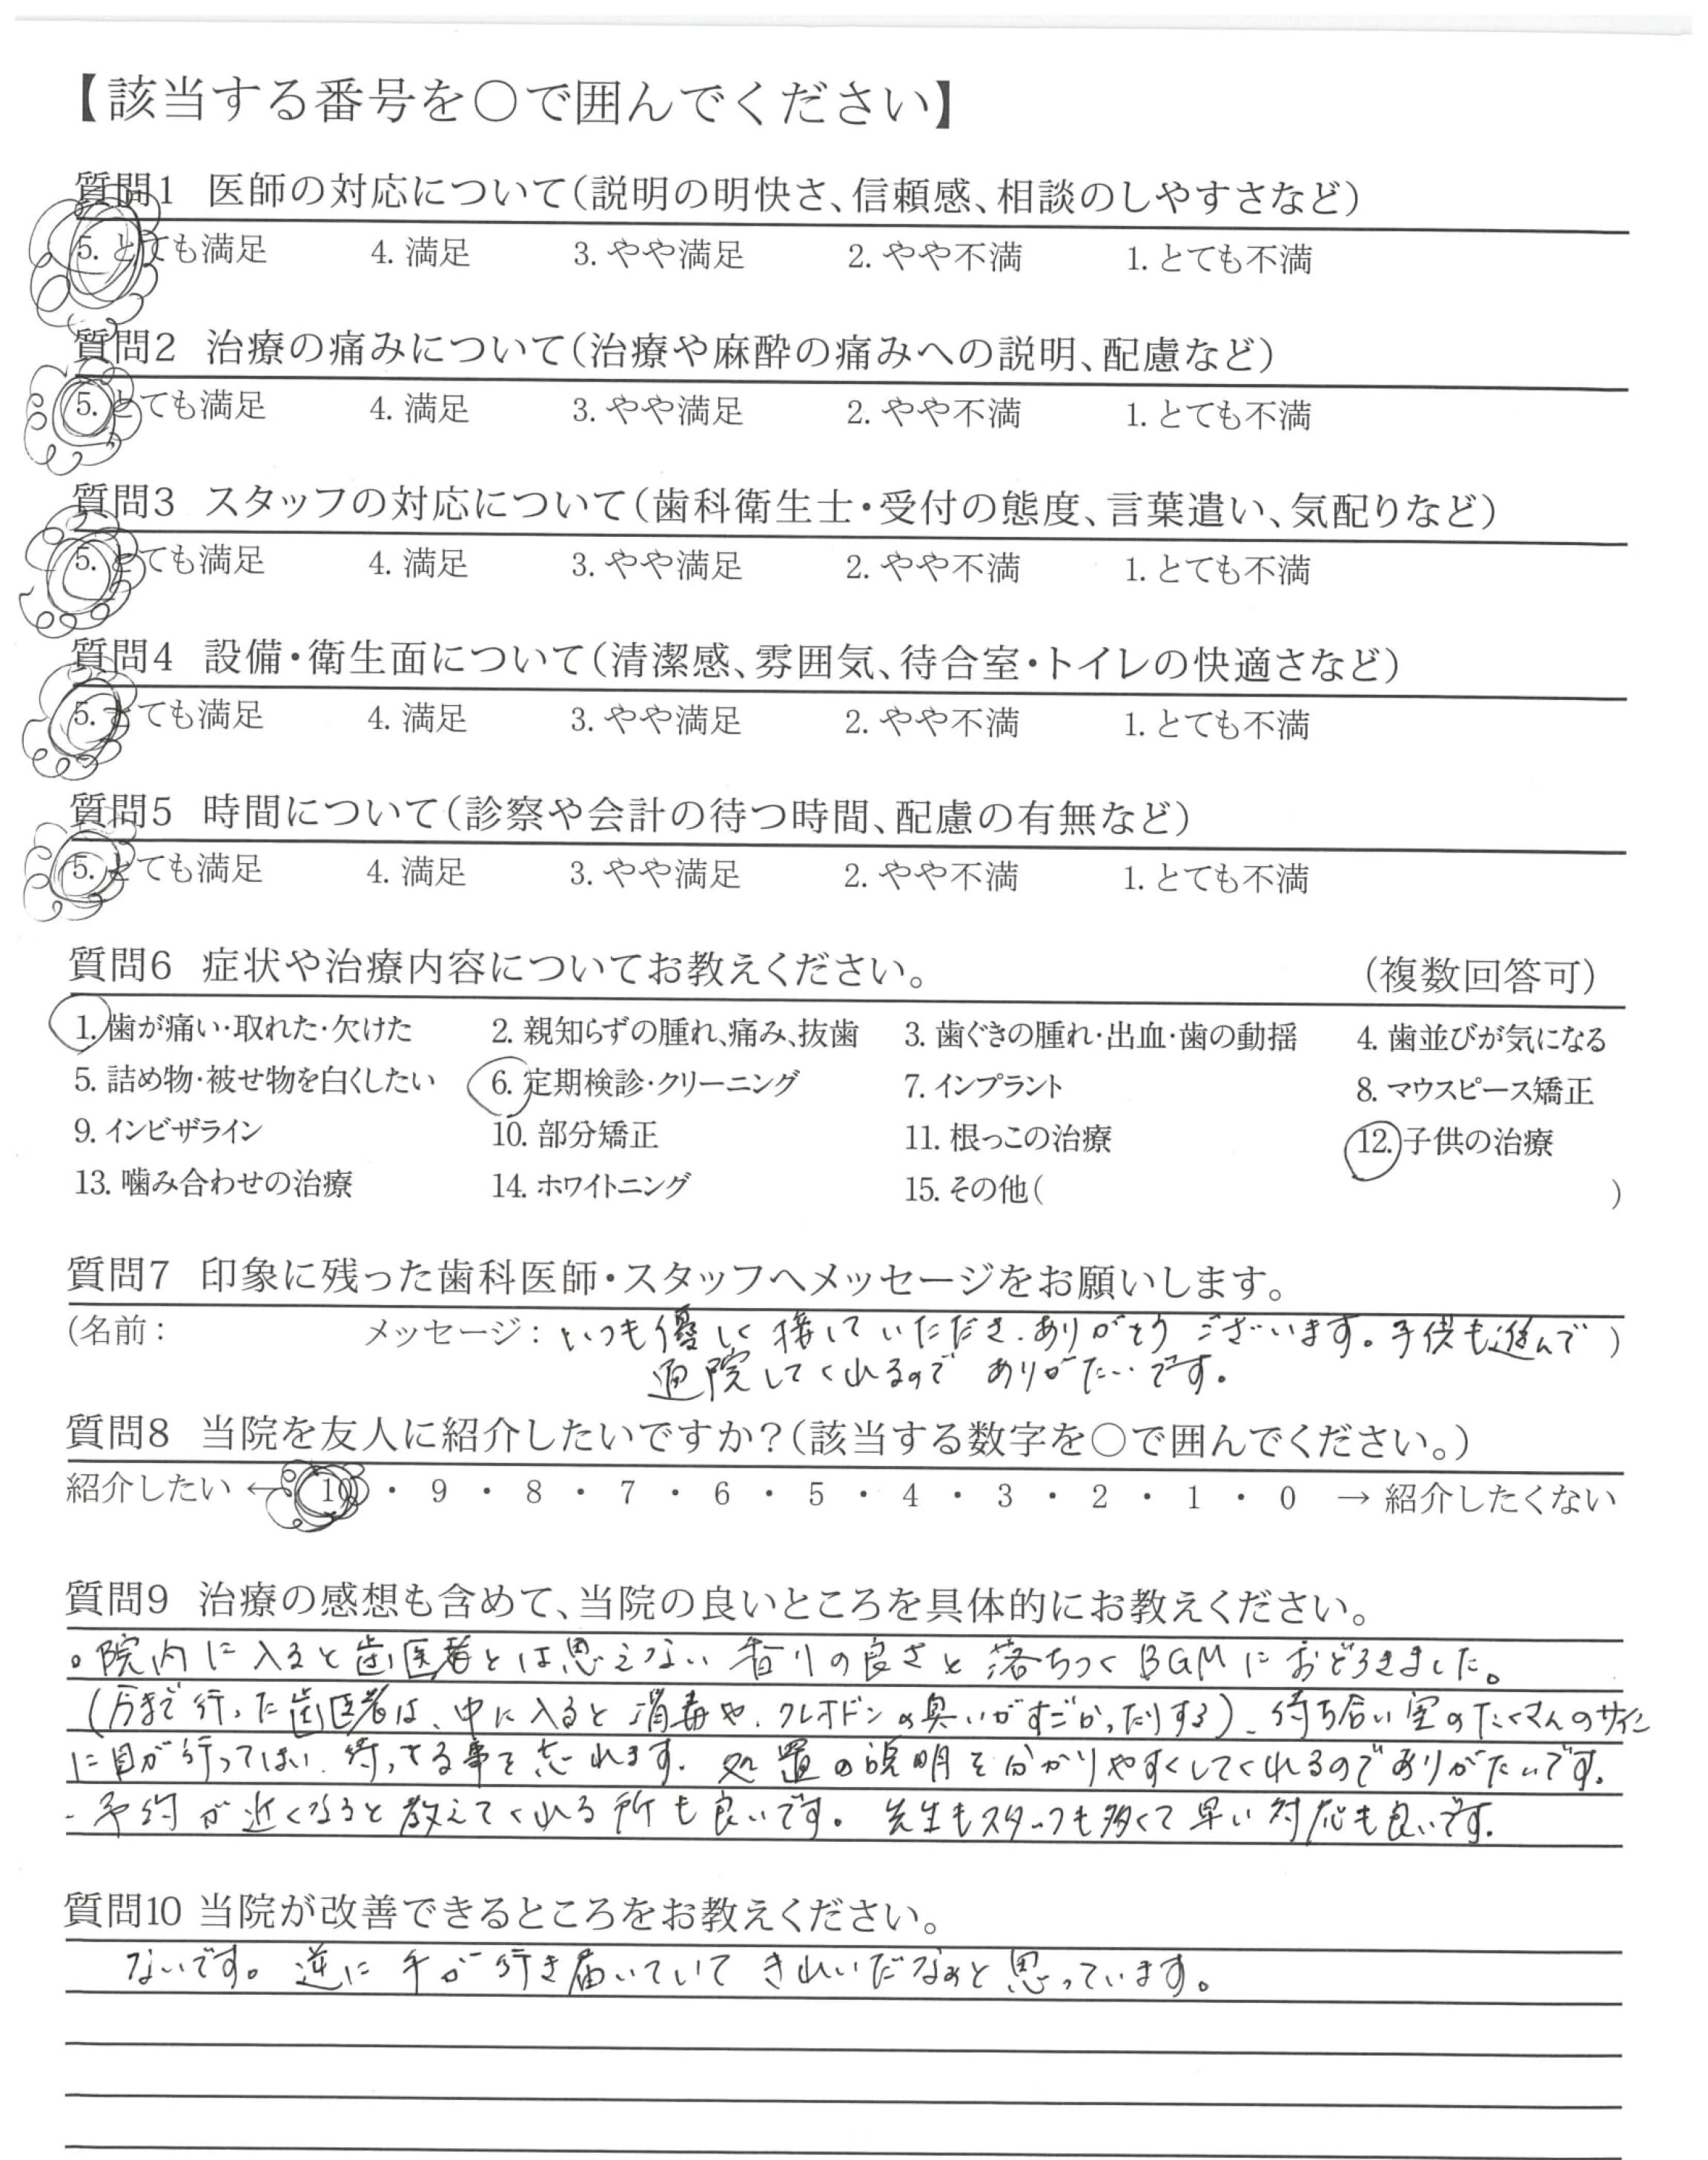 【該当する番号を○で囲んでください】
質問1 医師の対応について(説明の明快さ、信頼感、相談のしやすさなど)
5. とても満足 4. 満足 3. やや満足 2. やや不満 1. とても不満
質問2 治療の痛みについて(治療や麻酔の痛みへの説明、配慮など)
5. とても満足 4. 満足 3. やや満足 2. やや不満 1. とても不満
質問3 スタッフの対応について(歯科衛生士・受付の態度、言葉遣い、気配りなど)
5. とても満足 4. 満足 3. やや満足 2. やや不満 1. とても不満
質問4 設備・衛生面について(清潔感、雰囲気、待合室・トイレの快適さなど)
5. とても満足 4. 満足 3. やや満足 2. やや不満 1. とても不満
質問5 時間について(診察や会計の待つ時間、配慮の有無など)
5. とても満足 4. 満足 3. やや満足 2. やや不満 1. とても不満
質問6 症状や治療内容についてお教えください。 (複数回答可)
1. 歯が痛い・取れた・欠けた 2. 親知らずの腫れ、痛み、抜歯 3. 歯ぐきの腫れ・出血・歯の動揺 4. 歯並びが気になる
5. 詰め物・被せ物を白くしたい 6. 定期検診・クリーニング 7. インプラント 8. マウスピース矯正
9. インビザライン 10. 部分矯正 11. 根っこの治療 12. 子供の治療
13. 噛み合わせの治療 14. ホワイトニング 15. その他( )
質問7 印象に残った歯科医師・スタッフへメッセージをお願いします。
(名前: メッセージ: いつも優しく接していただき、ありがとうございます。子供も進んで )
通院してくれるので ありがたいです。
質問8 当院を友人に紹介したいですか?(該当する数字を○で囲んでください。)
紹介したい ← 10 ・ 9 ・ 8 ・ 7 ・ 6 ・ 5 ・ 4 ・ 3 ・ 2 ・ 1 ・ 0 → 紹介したくない
質問9 治療の感想も含めて、当院の良いところを具体的にお教えください。
。院内に入ると歯医者とは思えない香りの良さと落ちつくBGMにおどろきました。
(行った歯医者は、中に入ると消毒や、クレオドンの臭いがすごかったりする)、待ち合い室のたくさんのサイン
に目が行ってしまい、待ってる事を忘れます。処置の説明を分かりやすくしてくれるのでありがたいです。
・予約が近くなると教えてくれる所も良いです。先生もスタッフも多くて早い対応も良いです。
質問10 当院が改善できるところをお教えください。
ないです。逆に手が行き届いていてきれいだなぁと思っています。